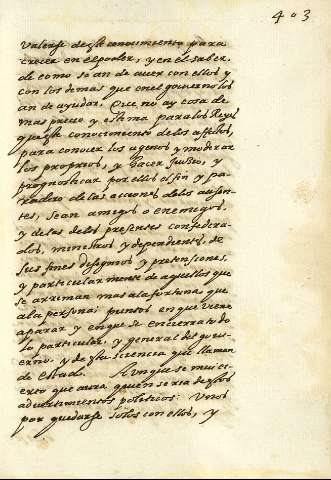 403
Valerse deste conocimiento para
crecer en el poder, y en el saber,
de como se an de auer con ellos y
con los demas que en el gouierno los
an de ayudar. Que no ay cosa de
mas precio y estima para los Reyes
que este conocimiento de los affectos,
para conocer los agenos y moderar
los proprios, y hacer Juicio, y
prognosticar por ellos el fin y pa-
radero de las acciones de los ausen-
tes, sean amigos o enemigos,
y de las de los presentes confedera-
dos, ministros y dependientes, de
sus fines desygnios y pretensiones,
y particularmente de aquellos que
se arriman mas a la fortuna que
a la persona: puntos en que viene
a parar y en que se encierra todo
lo particular, y general del goui-
erno, y de esta sciencia que llaman
de estado. Aunque se muy ci-
erto que aura quien se ria destos
aduertimientos politicos: Unos
por quedarse solos con ellos, y